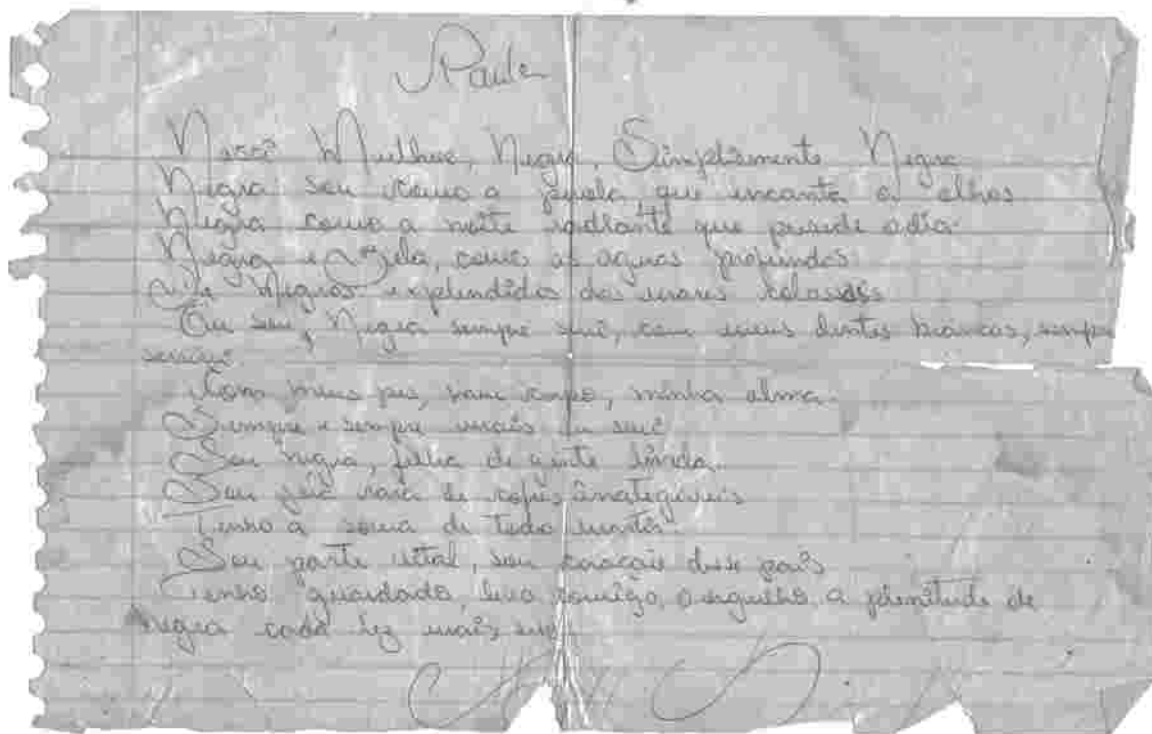 Paula
Mulher, Negra, Simplesmente Negra
Negra sou como a que encanta os olhos
Negra como a noite radiante que precede o dia.
Negra e Bela, como as aguas profundas
Negros explendidos dos mares
Eu sou, Negra sempre serei, com meus dentes brancos, sempre
Com meus pes, meu corpo, minha alma.
Sempre e sempre mais eu serei
Sou negra, filha de gente linda.
Sou rara de
Tenho a soma de tudo
Sou parte vital, sou coração desse país
Tenho guardado, levo comigo, orgulho, a plenitude de
negra cada vez mais